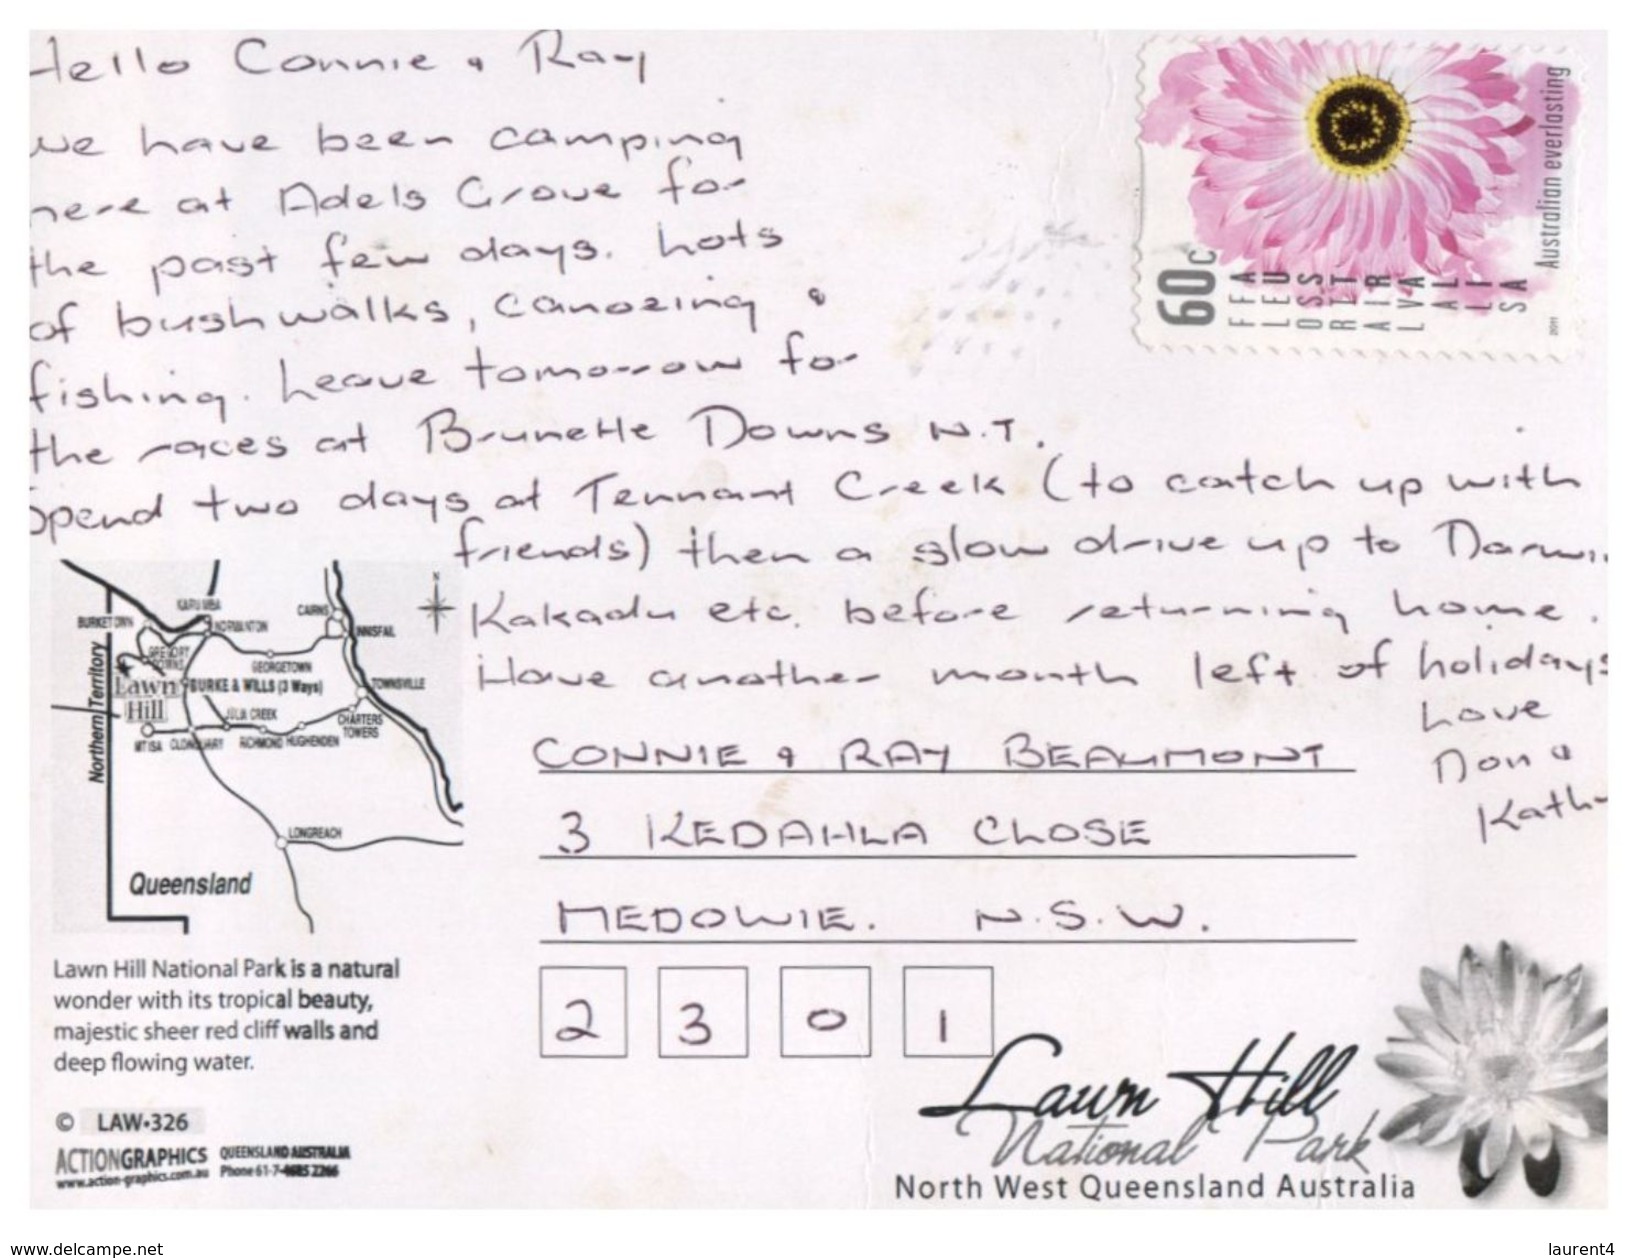 Hello Connie & Ray
we have been camping
here at Adels Grove for
the past few days. Lots
of bushwalks, canoeing &
fishing. Leave tomorrow for
the races at Brunette Downs N.T.
Spend two days at Tennant Creek (to catch up with
friends) then a slow drive up to Darwi
Kakadu etc. before returning home.
Have another month left of holidays
Love
Don &
Kath
CONNIE & RAY BEAUMONT
3 KEDAHLA CLOSE
MEDOWIE. N.S.W.
2 3 0 1
60c
FFA
LEU
OSS
RET
AIR
LVA
AL
ILI
SA
Australian everlasting
2011
N
KARUMBA
BURKETOWN
NORMANTON
CAIRNS
INNISFAIL
GREGORY
DOWNS
GEORGETOWN
Lawn
Hill
BURKE & WILLS (3 Ways)
TOWNSVILLE
JULIA CREEK
CHARTERS
TOWERS
MT ISA
CLONCURRY
RICHMOND
HUGHENDEN
Northern Territory
LONGREACH
Queensland
Lawn Hill National Park is a natural
wonder with its tropical beauty,
majestic sheer red cliff walls and
deep flowing water.
© LAW•326
ACTIONGRAPHICS QUEENSLAND AUSTRALIA
www.action-graphics.com.au Phone 61-7-4685 2266
Lawn Hill
National Park
North West Queensland Australia
www.delcampe.net
laurent4